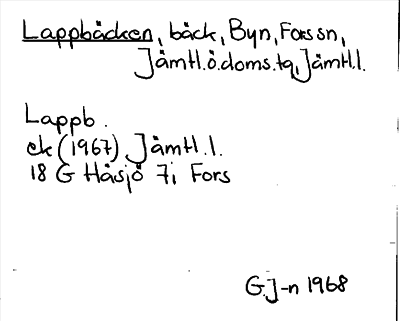 Lappbäcken, bäck, Byn, Fors sn,
Jämtl.ö.doms.tg, Jämtl.l.
Lappb.
ek (1967) Jämtl.l.
18 G Håsjö 7i Fors
G.J-n 1968